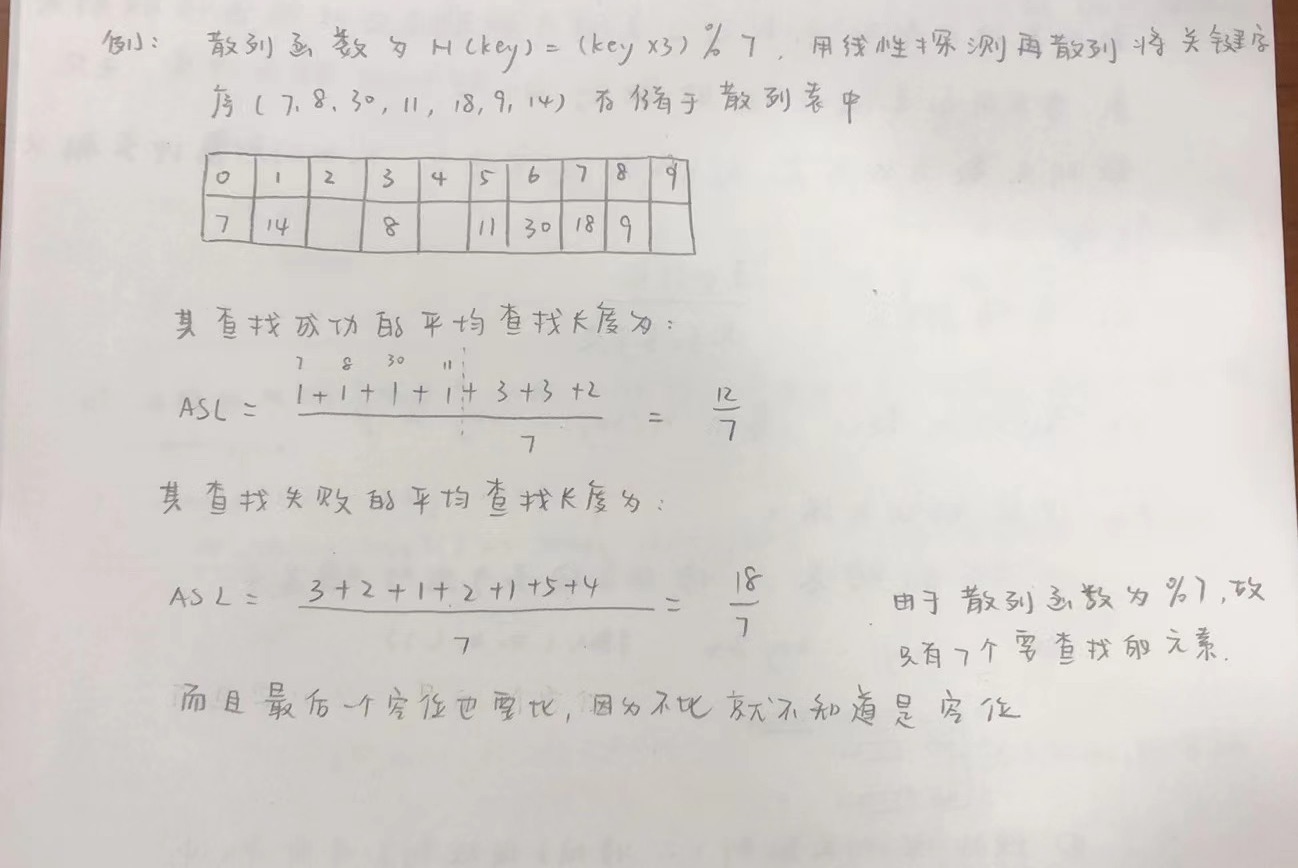 例1: 散列函数为 H(key) = (key×3) % 7, 用线性探测再散列将关键字
序(7, 8, 30, 11, 18, 9, 14) 存储于散列表中
0 1 2 3 4 5 6 7 8 9
7 14 8 11 30 18 9
其查找成功的平均查找长度为:
7 8 30 11
ASL = 1+1+1+1+3+3+2 / 7 = 12/7
其查找失败的平均查找长度为:
ASL = 3+2+1+2+1+5+4 / 7 = 18/7
由于散列函数为%7, 故
只有7个要查找的元素.
而且最后一个空位也要比, 因为不比就不知道是空位